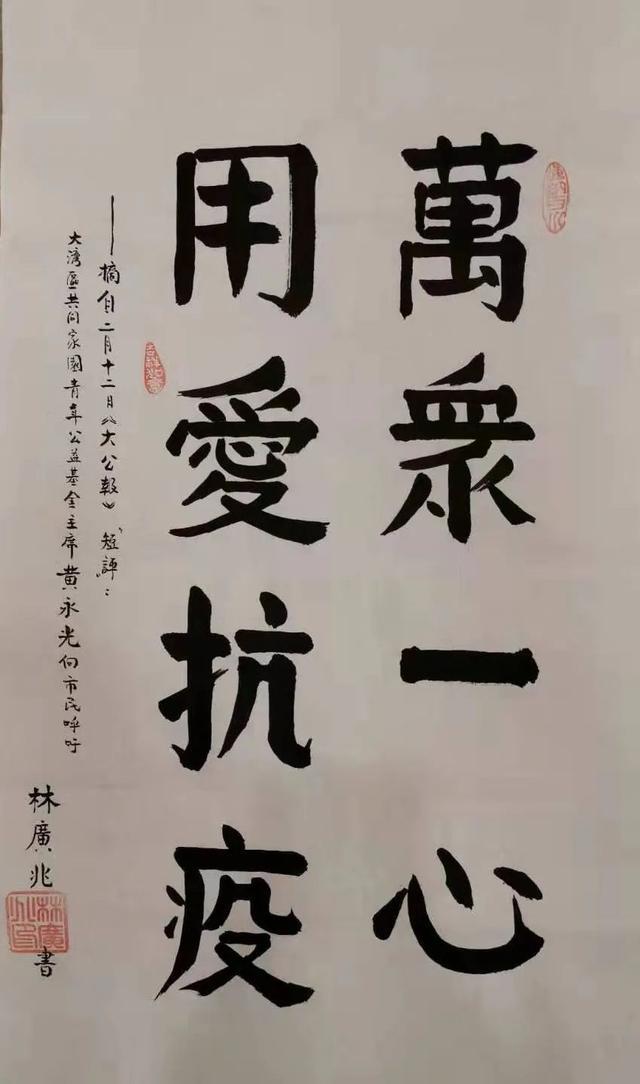 萬衆一心
用愛抗疫
——摘自二月十二日《大公報》“短評”：
大灣區共同家園青年公益基金主席黄永光向市民呼吁
林廣兆書
林廣